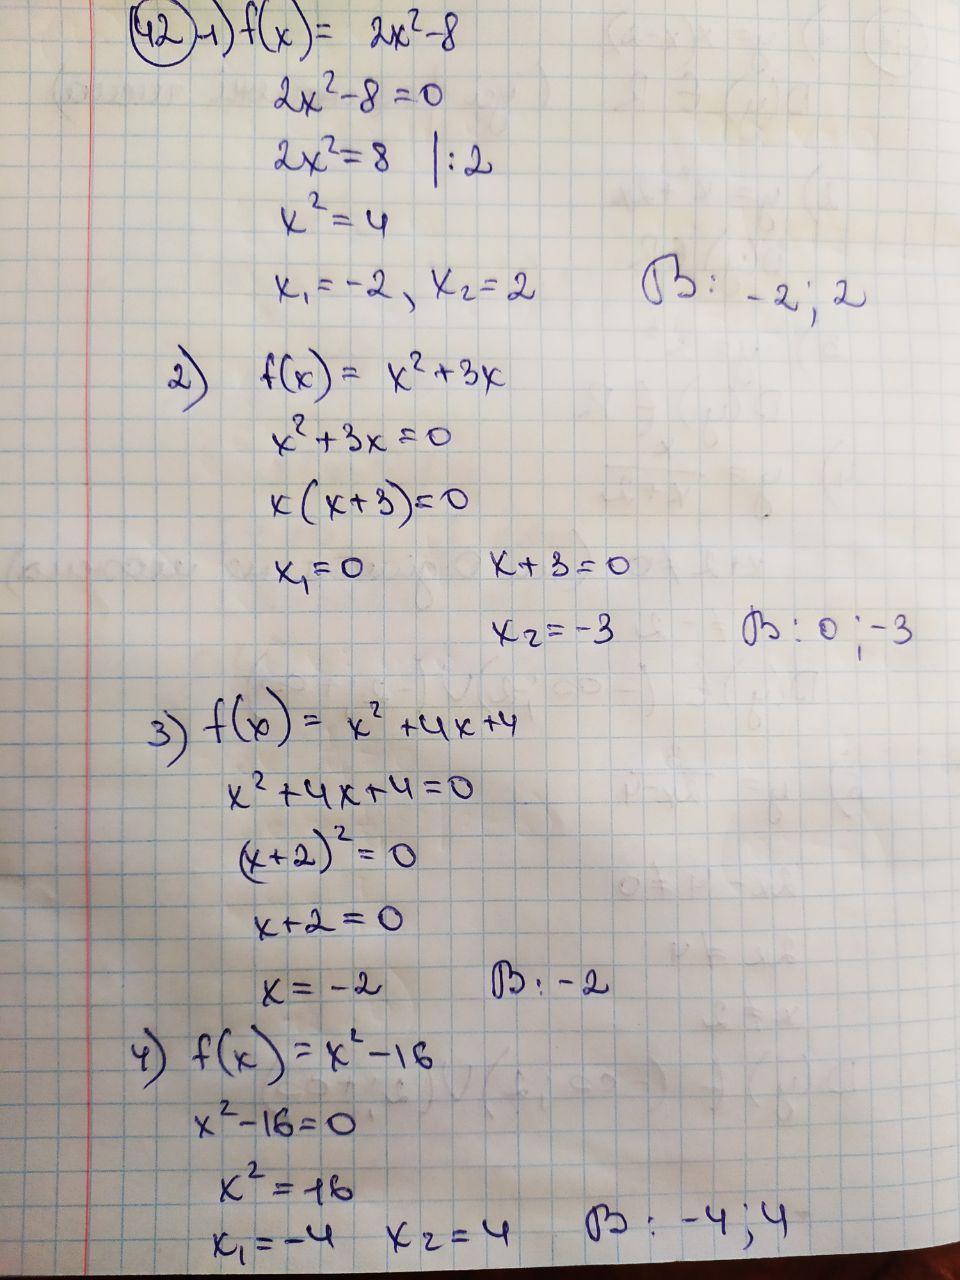 42 1) f(x) = 2x²-8
2x²-8=0
2x²=8 |:2
x²=4
x₁=-2, x₂=2 В: -2; 2
2) f(x) = x²+3x
x²+3x=0
x(x+3)=0
x₁=0 x+3=0
x₂=-3 В: 0; -3
3) f(x) = x²+4x+4
x²+4x+4=0
(x+2)²=0
x+2=0
x=-2 В: -2
4) f(x)=x²-16
x²-16=0
x²=16
x₁=-4 x₂=4 В: -4; 4